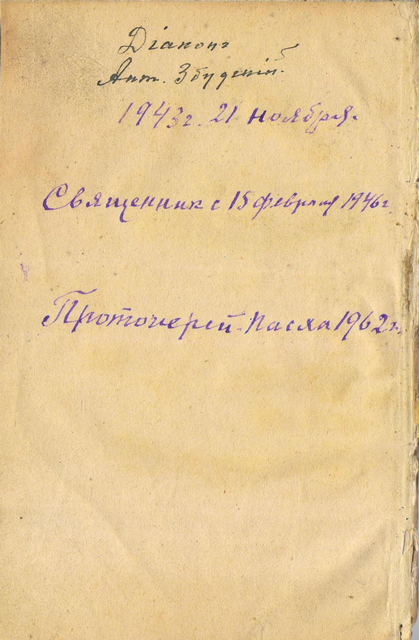 Діаконъ
Ант. Збудскій.
1943 г. 21 ноября.
Священник с 15 февраля 1946 г.
Протоиерей - Пасха 1962 г.